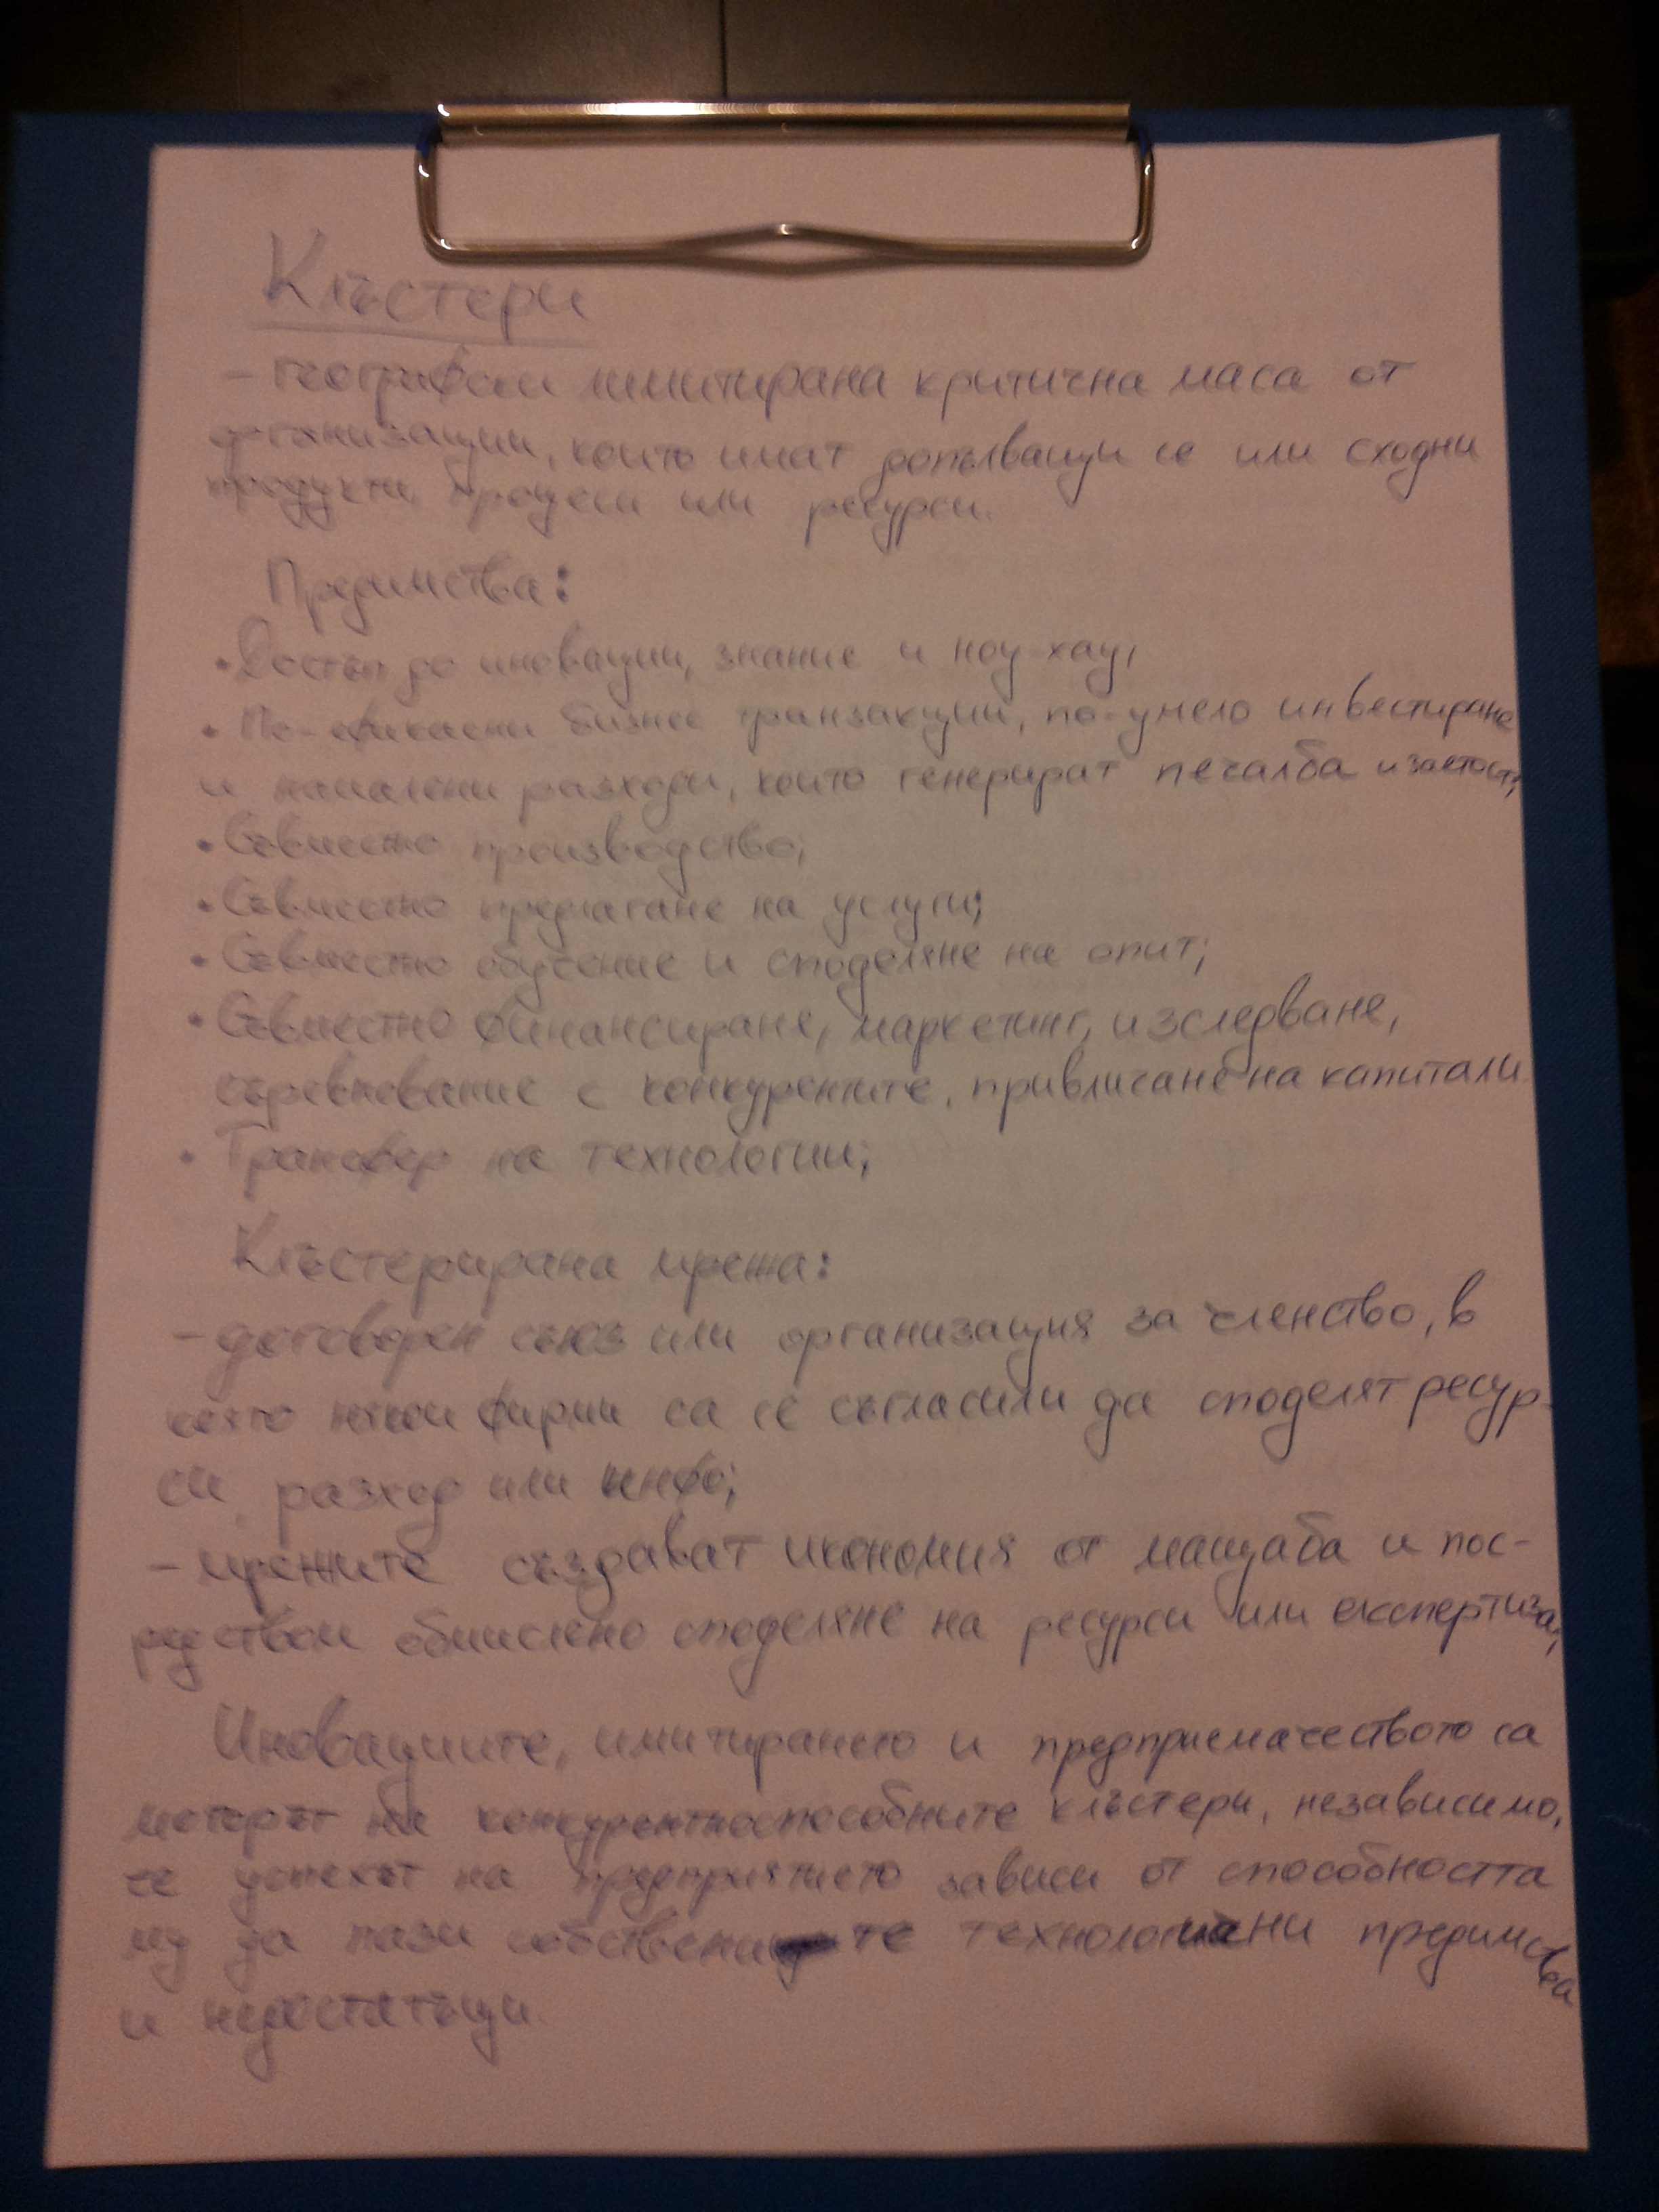 Клъстери
– географски лимитирана критична маса от
организации, които имат допълващи се или сходни
продукти, процеси или ресурси.
Предимства:
• Достъп до иновации, знание и ноу-хау;
• По-ефикасни бизнес транзакции, по-умело инвестиране
и намалени разходи, които генерират печалба и заетост;
• Съвместно производство;
• Съвместно предлагане на услуги;
• Съвместно обучение и споделяне на опит;
• Съвместно финансиране, маркетинг, изследване,
съревнование с конкурентите, привличане на капитали.
• Трансфер на технологии;
Клъстерирана мрежа:
– договорен съюз или организация за членство, в
която някои фирми са се съгласили да споделят ресур-
си, разход или инфо;
– мрежите създават икономия от мащаба и пос-
редством обмислено споделяне на ресурси или експертиза;
Иновациите, имитирането и предприемачеството са
моторът на конкурентноспособните клъстери, независимо,
че успехът на предприятието зависи от способността
му да пази собствените технологични предимства
и недостатъци.